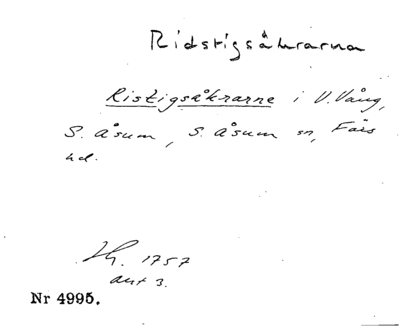 Ridstigsåkrarna
Ristigsåkrarne i V. Vång,
S. Åsum, S. Åsum sn, Färs
hd.
1757
akt 3.
Nr 4995.